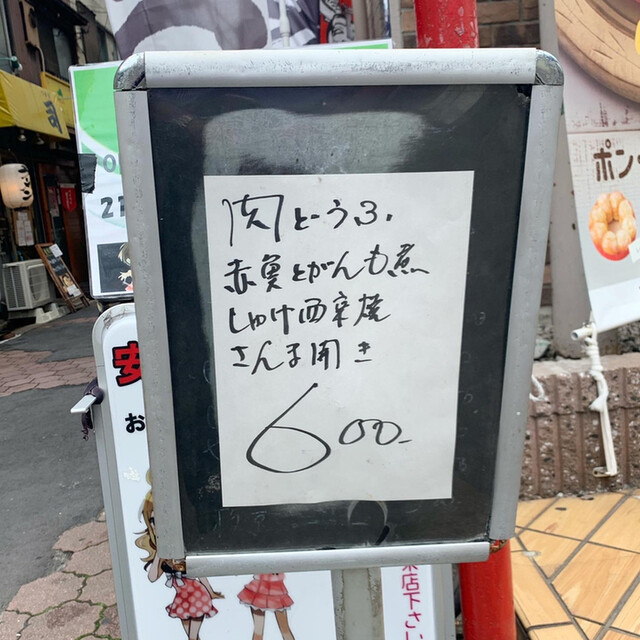 肉とうふ
赤魚とがんも煮
しゃけ西京焼
さんま開き
600-
ポン
安
お
来店下さい
21